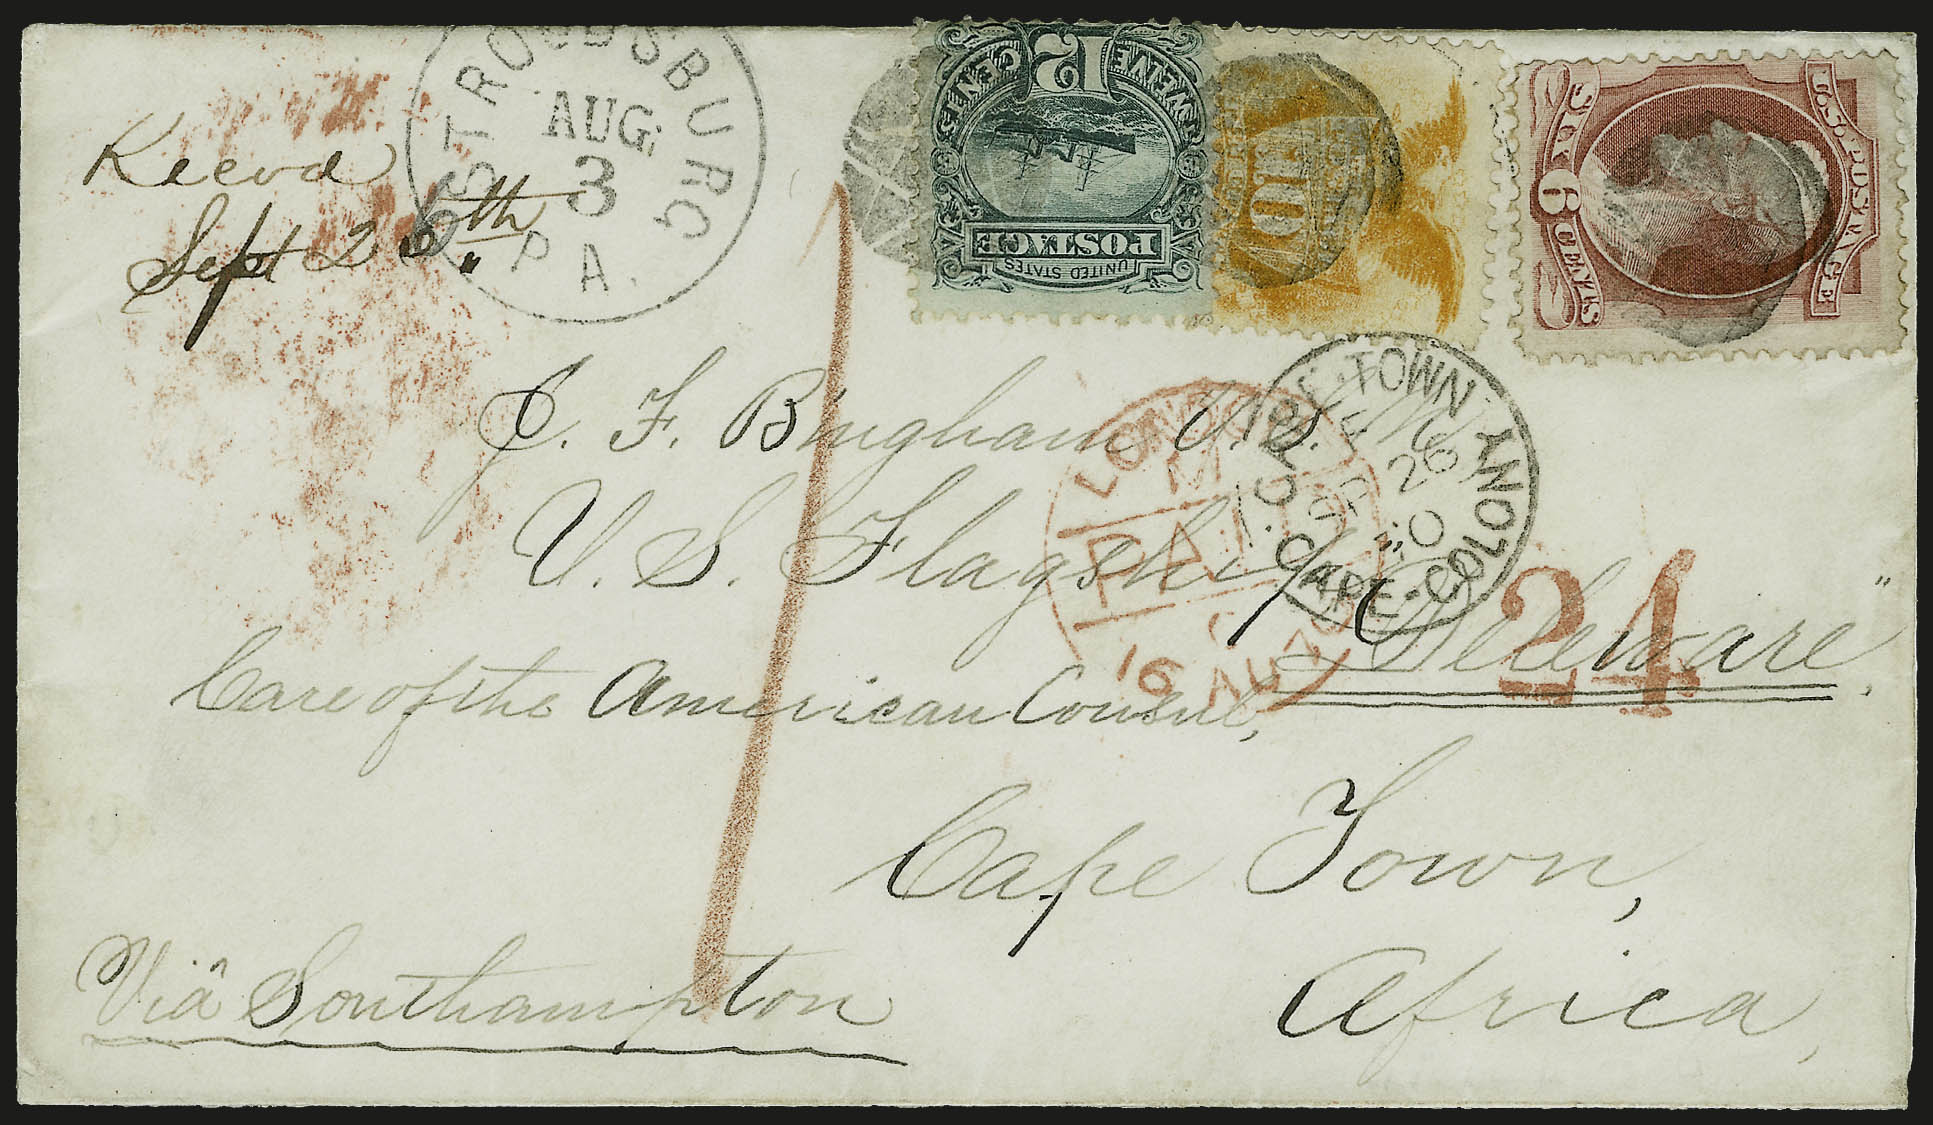 STROUDSBURG
AUG.
3
PA.
Recvd
Sept 26th
UNITED STATES
POSTAGE
12
TWELVE CENTS
10
U.S. POSTAGE
SIX 6 CENTS
CAPE-TOWN
SP 26
70
CAPE-COLONY
LONDON
M
PAID
16 AU 70
24
1
J. F. Bingham U.S.
U. S. Flagship "Deleware",
Care of the American Consul,
Cape Town,
Africa,
Viâ Southampton